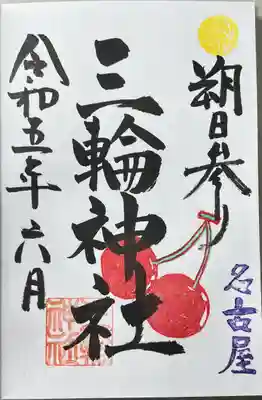 朔日参り
三輪神社
名古屋
令和五年六月